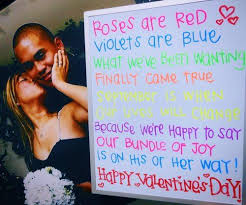 ROSES ARE RED
VIOLETS ARE BLUE
WHAT WE'VE BEEN WANTING
FINALLY CAME TRUE
SEPTEMBER IS WHEN
OUR LIVES WILL CHANGE
BECAUSE WE'RE HAPPY TO SAY
OUR BUNDLE OF JOY
IS ON HIS OR HER WAY!
HAPPY VALENTINE'S DAY!